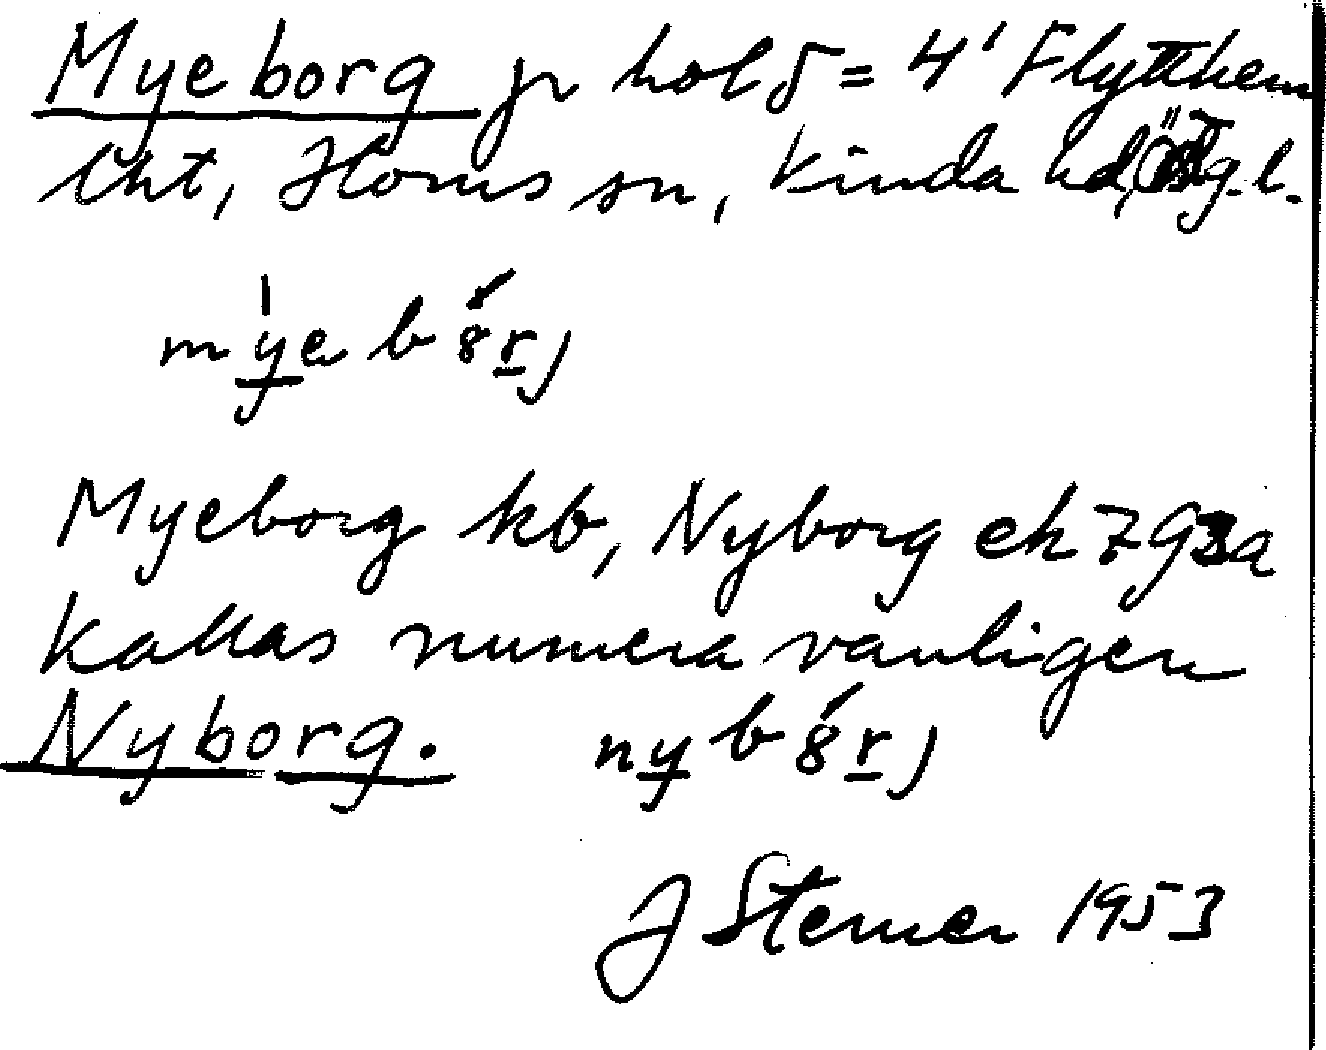 Myeborg p hol 5 = 4' Flytthem
Cht, Horns sn, Kinda hd, Östg. l.
myeb8rj
Myeborg kb, Nyborg ek 7 9 3 a
kallas numera vanligen
Nyborg. nyb8rj
J Sterner 1953